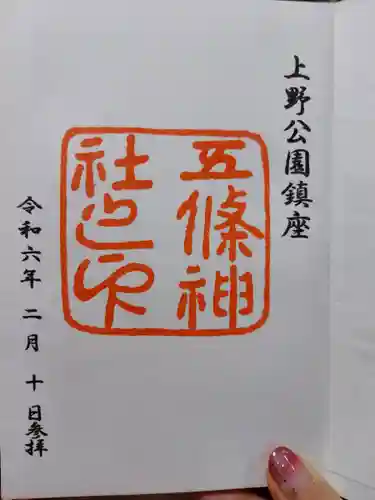 上野公園鎮座
五條神
社之印
令和六年 二月 十日参拝